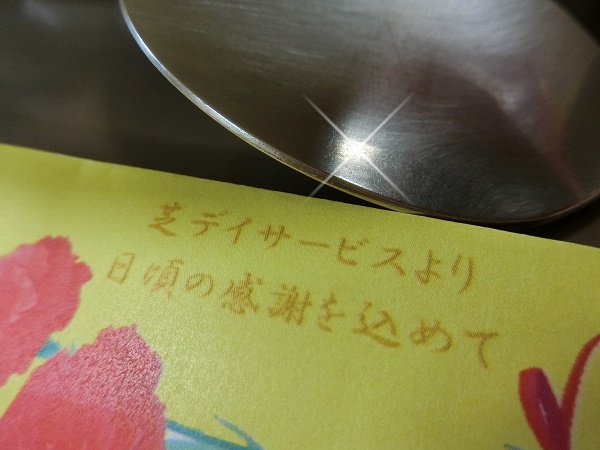 芝デイサービスより
日頃の感謝を込めて